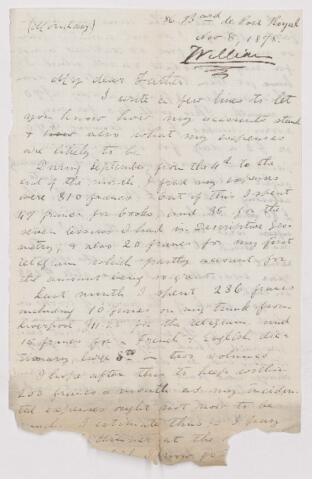 (Monday)
86 Bard de Port Royal
Nov 8, 1898.
William
My dear Father
I write a few lines to let
you know how my accounts stand
& also what my expenses
are likely to be
During September, from the 4th to the
end of the month I find my expenses
were 310 francs - out of this I spent
49 francs for books, and 35 for the
seven lessons I had in Descriptive Geo-
metry, & also 20 francs for my first
telegram which partly account for
the amount being so great.
Last month I spent 236 francs
including 10 francs on my trunk from
Liverpool, for the telegram and
francs for a French & English dic-
tionary, large 8vo - two volumes
I hope after this to keep within
200 francs a month as my inciden-
tal expenses ought not now to be
much. I estimate thus I pay
dinner at the